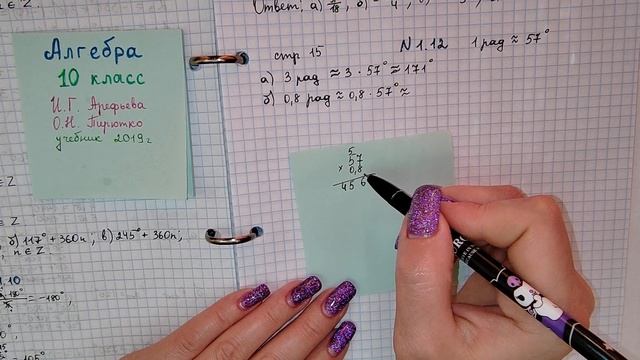 Алгебра
10 класс
И.Г. Арефьева
О.Н. Пирютко
учебник 2019г
Ответ: а)
стр 15 N 1.12 1 рад ≈ 57°
а) 3 рад ≈ 3 · 57° ≈ 171°
б) 0,8 рад ≈ 0,8 · 57° ≈
5
57
× 0,8
456
∈ Z
б) 117° + 360n; в) 245° + 360n,
n ∈ Z.
= -180°,